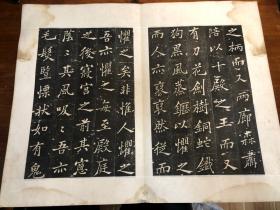 之柄而又两廊森肅
陪以十殿之王而又
有刀花劍樹銅蛇鐵
狗黑風蒸鑊以懼之
而人亦哀哀然從而
懼之矣非惟人懼之
吾亦懼之每至殿庭
之後寢宮之前其窓
陰其風吸吾亦
毛髮豎慄狀如有鬼